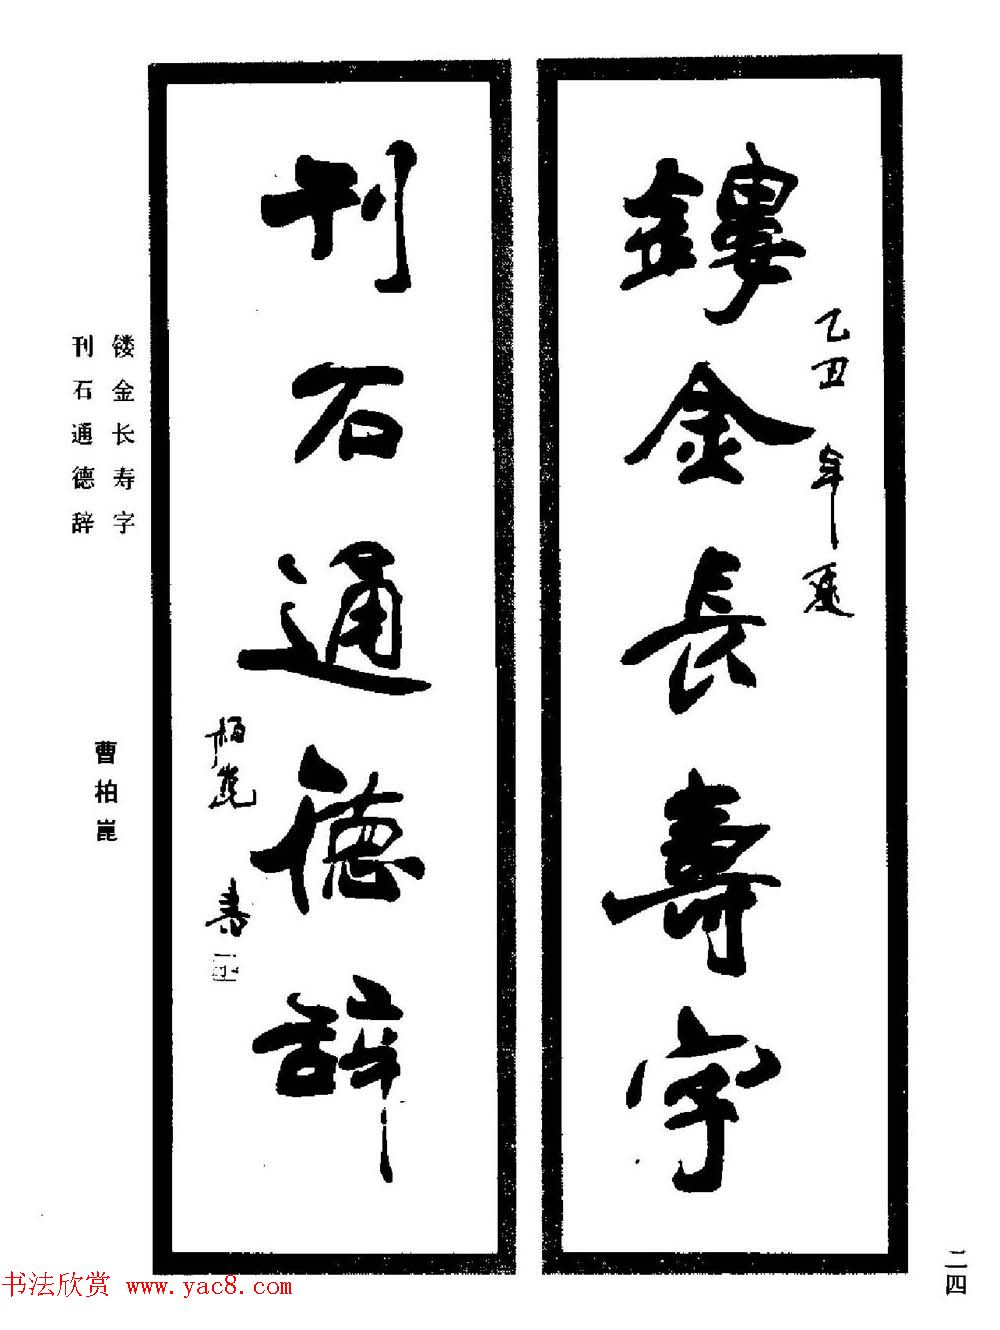 鏤金長壽字
乙丑年夏
刊石通德辞
柏崑書
镂金长寿字
刊石通德辞
曹柏崑
二四
书法欣赏 www.yac8.com